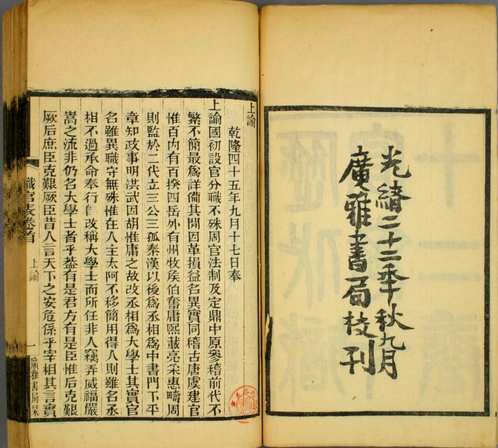 光緒二十二秊秋九月
廣雅書局校刊
上諭
乾隆四十五年九月十七日奉
上諭國初設官分職不殊周官法制及定鼎中原參稽前代不
繁不簡最爲詳備其間因革損益名異實同稽古唐虞建官
惟百內有百揆四岳外有州牧侯伯奮庸熙載亮采惠疇周
則監於二代立三公三孤秦漢以後爲丞相爲中書門下平
章知政事明洪武因胡惟庸之故改丞相爲大學士其實官
名雖異職守無殊惟在人主太阿不移簡用得人則雖名丞
相不過承命奉行即改稱大學士而所任非人竊弄威福嚴
嵩之流非仍名大學士者乎蓋有是君方有是臣惟后克艱
厥后庶臣克艱厥臣昔人言天下之安危係乎宰相其言實
職官表卷首 上諭 一 廣雅書局栞